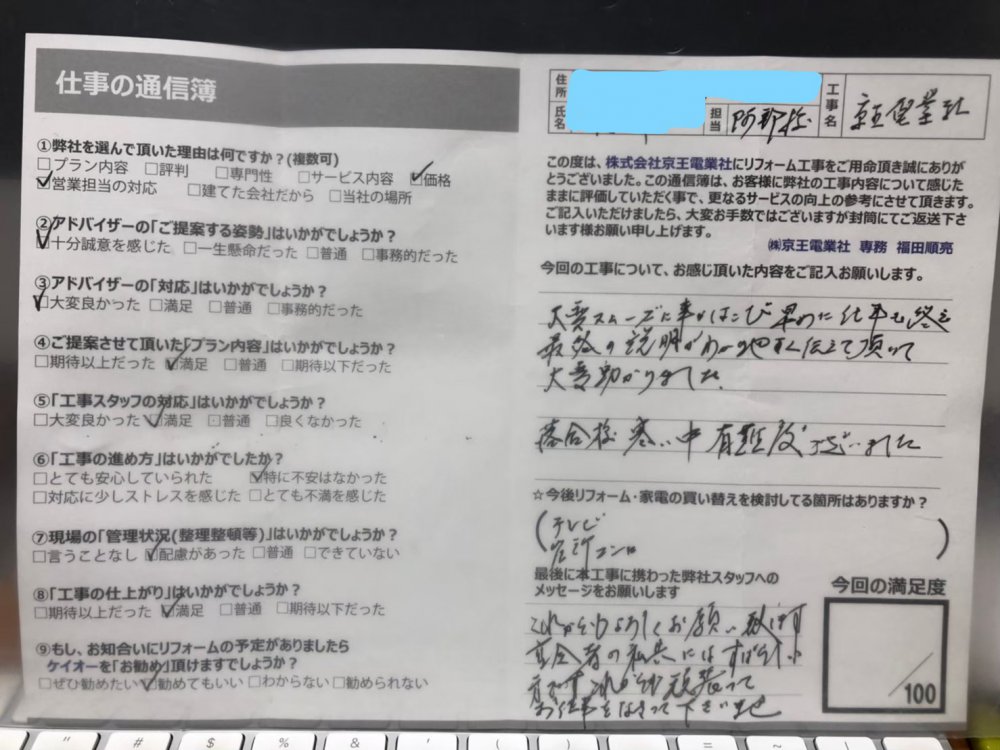 仕事の通信簿
①弊社を選んで頂いた理由は何ですか?(複数可)
□プラン内容 □評判 □専門性 □サービス内容 ☑価格
☑営業担当の対応 □建てた会社だから □当社の場所
②アドバイザーの「ご提案する姿勢」はいかがでしょうか?
☑十分誠意を感じた □一生懸命だった □普通 □事務的だった
③アドバイザーの「対応」はいかがでしょうか?
☑大変良かった □満足 □普通 □事務的だった
④ご提案させて頂いた「プラン内容」はいかがでしょうか?
□期待以上だった ☑満足 □普通 □期待以下だった
⑤「工事スタッフの対応」はいかがでしょうか?
□大変良かった ☑満足 □普通 □良くなかった
⑥「工事の進め方」はいかがでしたか?
□とても安心していられた ☑特に不安はなかった
□対応に少しストレスを感じた □とても不満を感じた
⑦現場の「管理状況(整理整頓等)」はいかがでしょうか?
□言うことなし ☑配慮があった □普通 □できていない
⑧「工事の仕上がり」はいかがでしょうか?
□期待以上だった ☑満足 □普通 □期待以下だった
⑨もし、お知合いにリフォームの予定がありましたら
ケイオーを「お勧め」頂けますでしょうか?
□ぜひ勧めたい ☑勧めてもいい □わからない □勧められない
住所
氏名
担当 阿部様
工事名 京王電業社
この度は、株式会社京王電業社にリフォーム工事をご用命頂き誠にありが
とうございました。この通信簿は、お客様に弊社の工事内容について感じた
ままに評価していただく事で、更なるサービスの向上の参考にさせて頂きます。
ご記入いただけましたら、大変お手数ではございますが封筒にてご返送下さ
います様お願い申し上げます。
㈱京王電業社 専務 福田順亮
今回の工事について、お感じ頂いた内容をご記入お願いします。
大変スムーズに事がはこび早めに仕事も終え
最後の説明がわかりやすく伝えて頂いて
大変助かりました
落合様 寒い中 有難度うございました
☆今後リフォーム・家電の買い替えを検討してる箇所はありますか?
(テレビ
台所コンロ)
最後に本工事に携わった弊社スタッフへの
メッセージをお願いします
これからもよろしくお願い致します
の私共にはすばらしい
方です これからも頑張って
お仕事をなさって下さいませ
今回の満足度
/100